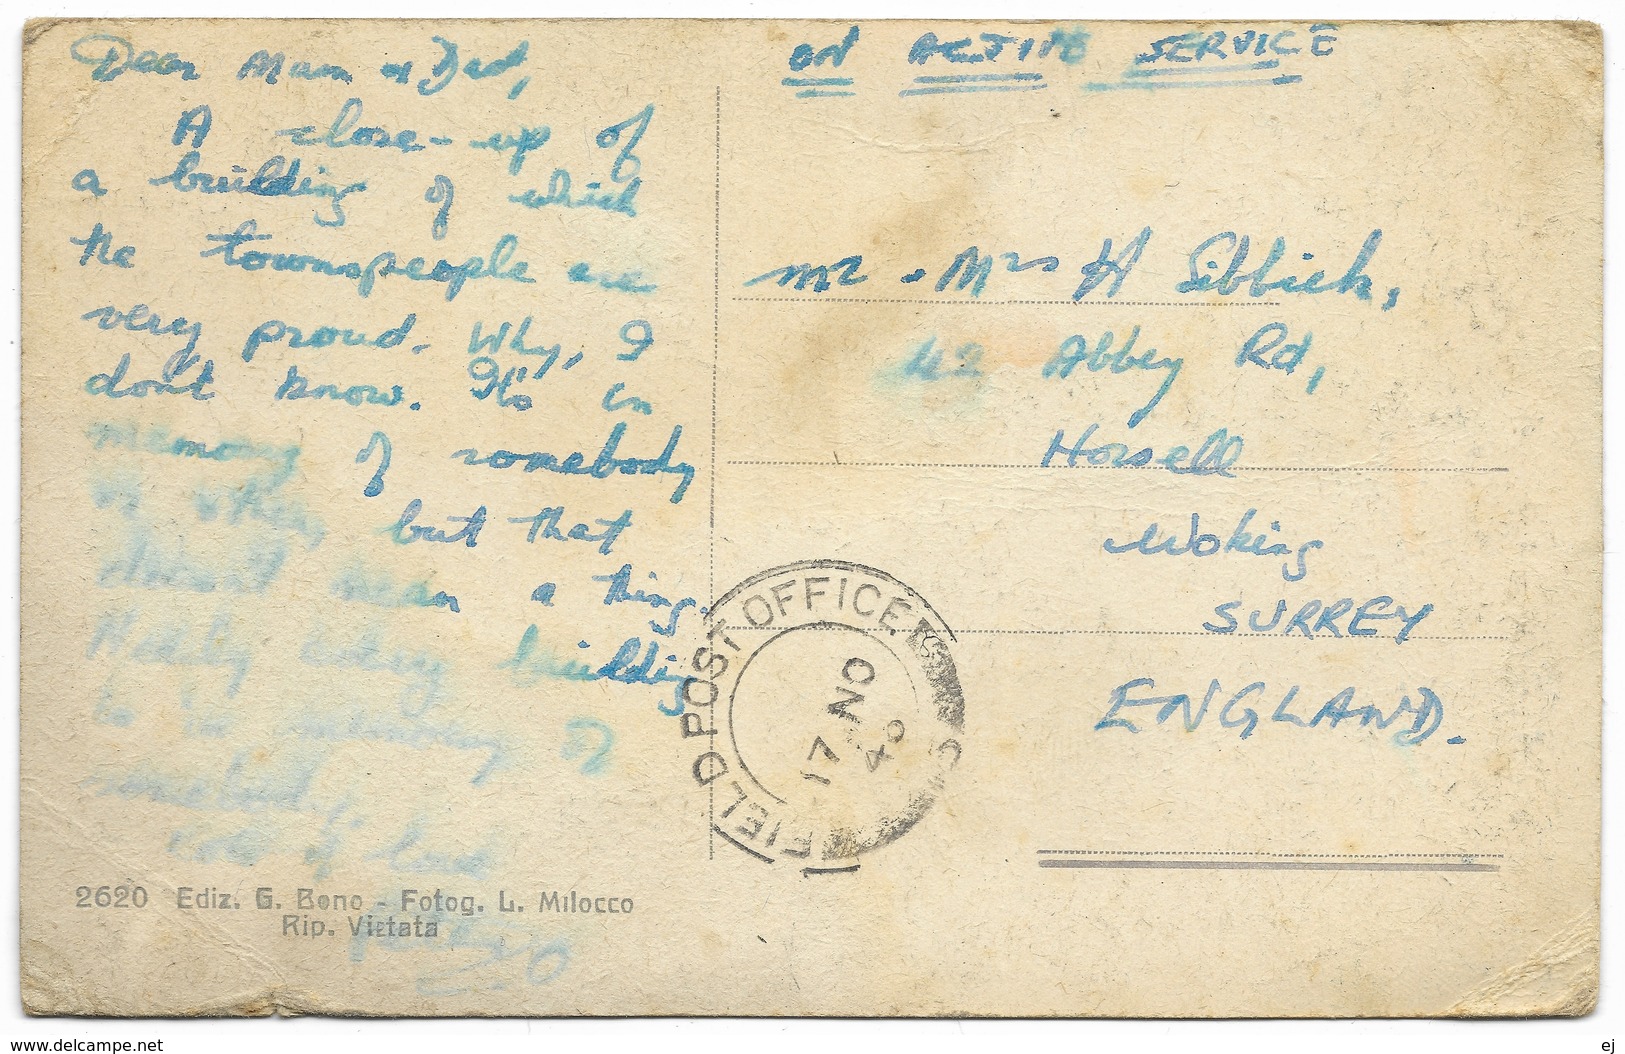 Dear Mum & Dad,
A close-up of
a building of which
the townspeople are
very proud. Why, I
don't know. It's in
memory of somebody
or other, but that
doesn't mean a thing.
Nearly every building
is in memory of
somebody.
of love
ON ACTIVE SERVICE
Mr & Mrs H Sibbick,
42 Abbey Rd,
Horsell
Woking
SURREY
ENGLAND.
FIELD POST OFFICE
17 NO
2620 Ediz. G. Bono - Fotog. L. Milocco
Rip. Vietata
www.delcampe.net
ej